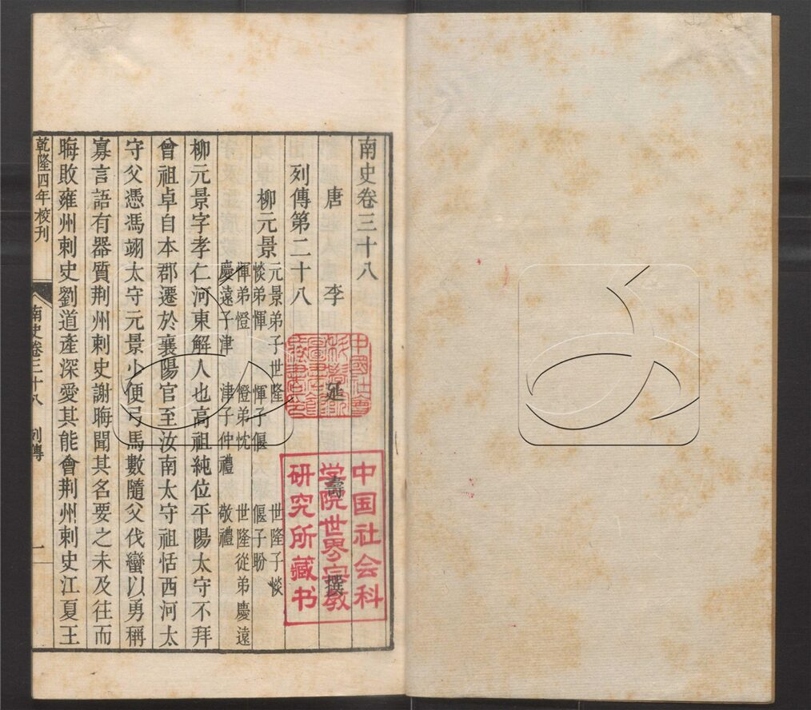 南史卷三十八
唐 李 延 壽 撰
列傳第二十八
柳元景 元景弟子世隆 世隆子惔
惔弟惲 惲子偃 偃子盼
惲弟憕 憕弟忱 世隆從弟慶遠
慶遠子津 津子仲禮 敬禮
柳元景字孝仁河東解人也高祖純位平陽太守不拜
曾祖卓自本郡遷於襄陽官至汝南太守祖恬西河太
守父憑馮翊太守元景少便弓馬數隨父伐蠻以勇稱
寡言語有器質荆州刺史謝晦聞其名要之未及往而
晦敗雍州刺史劉道產深愛其能會荆州刺史江夏王
乾隆四年校刊
南史卷三十八 列傳 一
中國社會
科學院
圖書館
藏書
中国社会科
学院世界宗教
研究所藏书